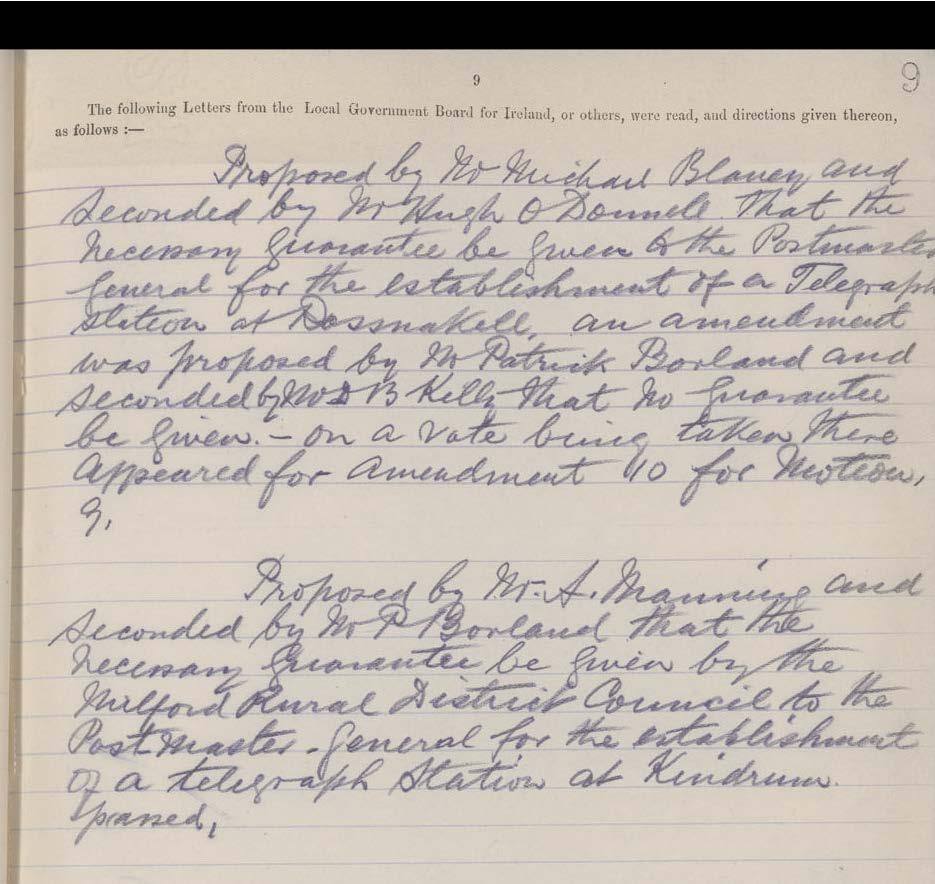 9
9
The following Letters from the Local Government Board for Ireland, or others, were read, and directions given thereon,
as follows :—
Proposed by Mr Michael Blaney and
Seconded by Mr Hugh O'Donnell. That the
necessary guarantee be given to the Postmaster
General for the establishment of a Telegraph
station at Rossnakell, an amendment
was proposed by Mr Patrick Borland and
seconded by Mr D B Kelly that no guarantee
be given. – on a vote being taken there
appeared for amendment 10 for Motion,
9,
Proposed by Mr. A. Manning and
Seconded by Mr P Borland that the
necessary guarantee be given by the
Milford Rural District Council to the
Post Master-General for the establishment
of a telegraph Station at Kindrum.
passed,